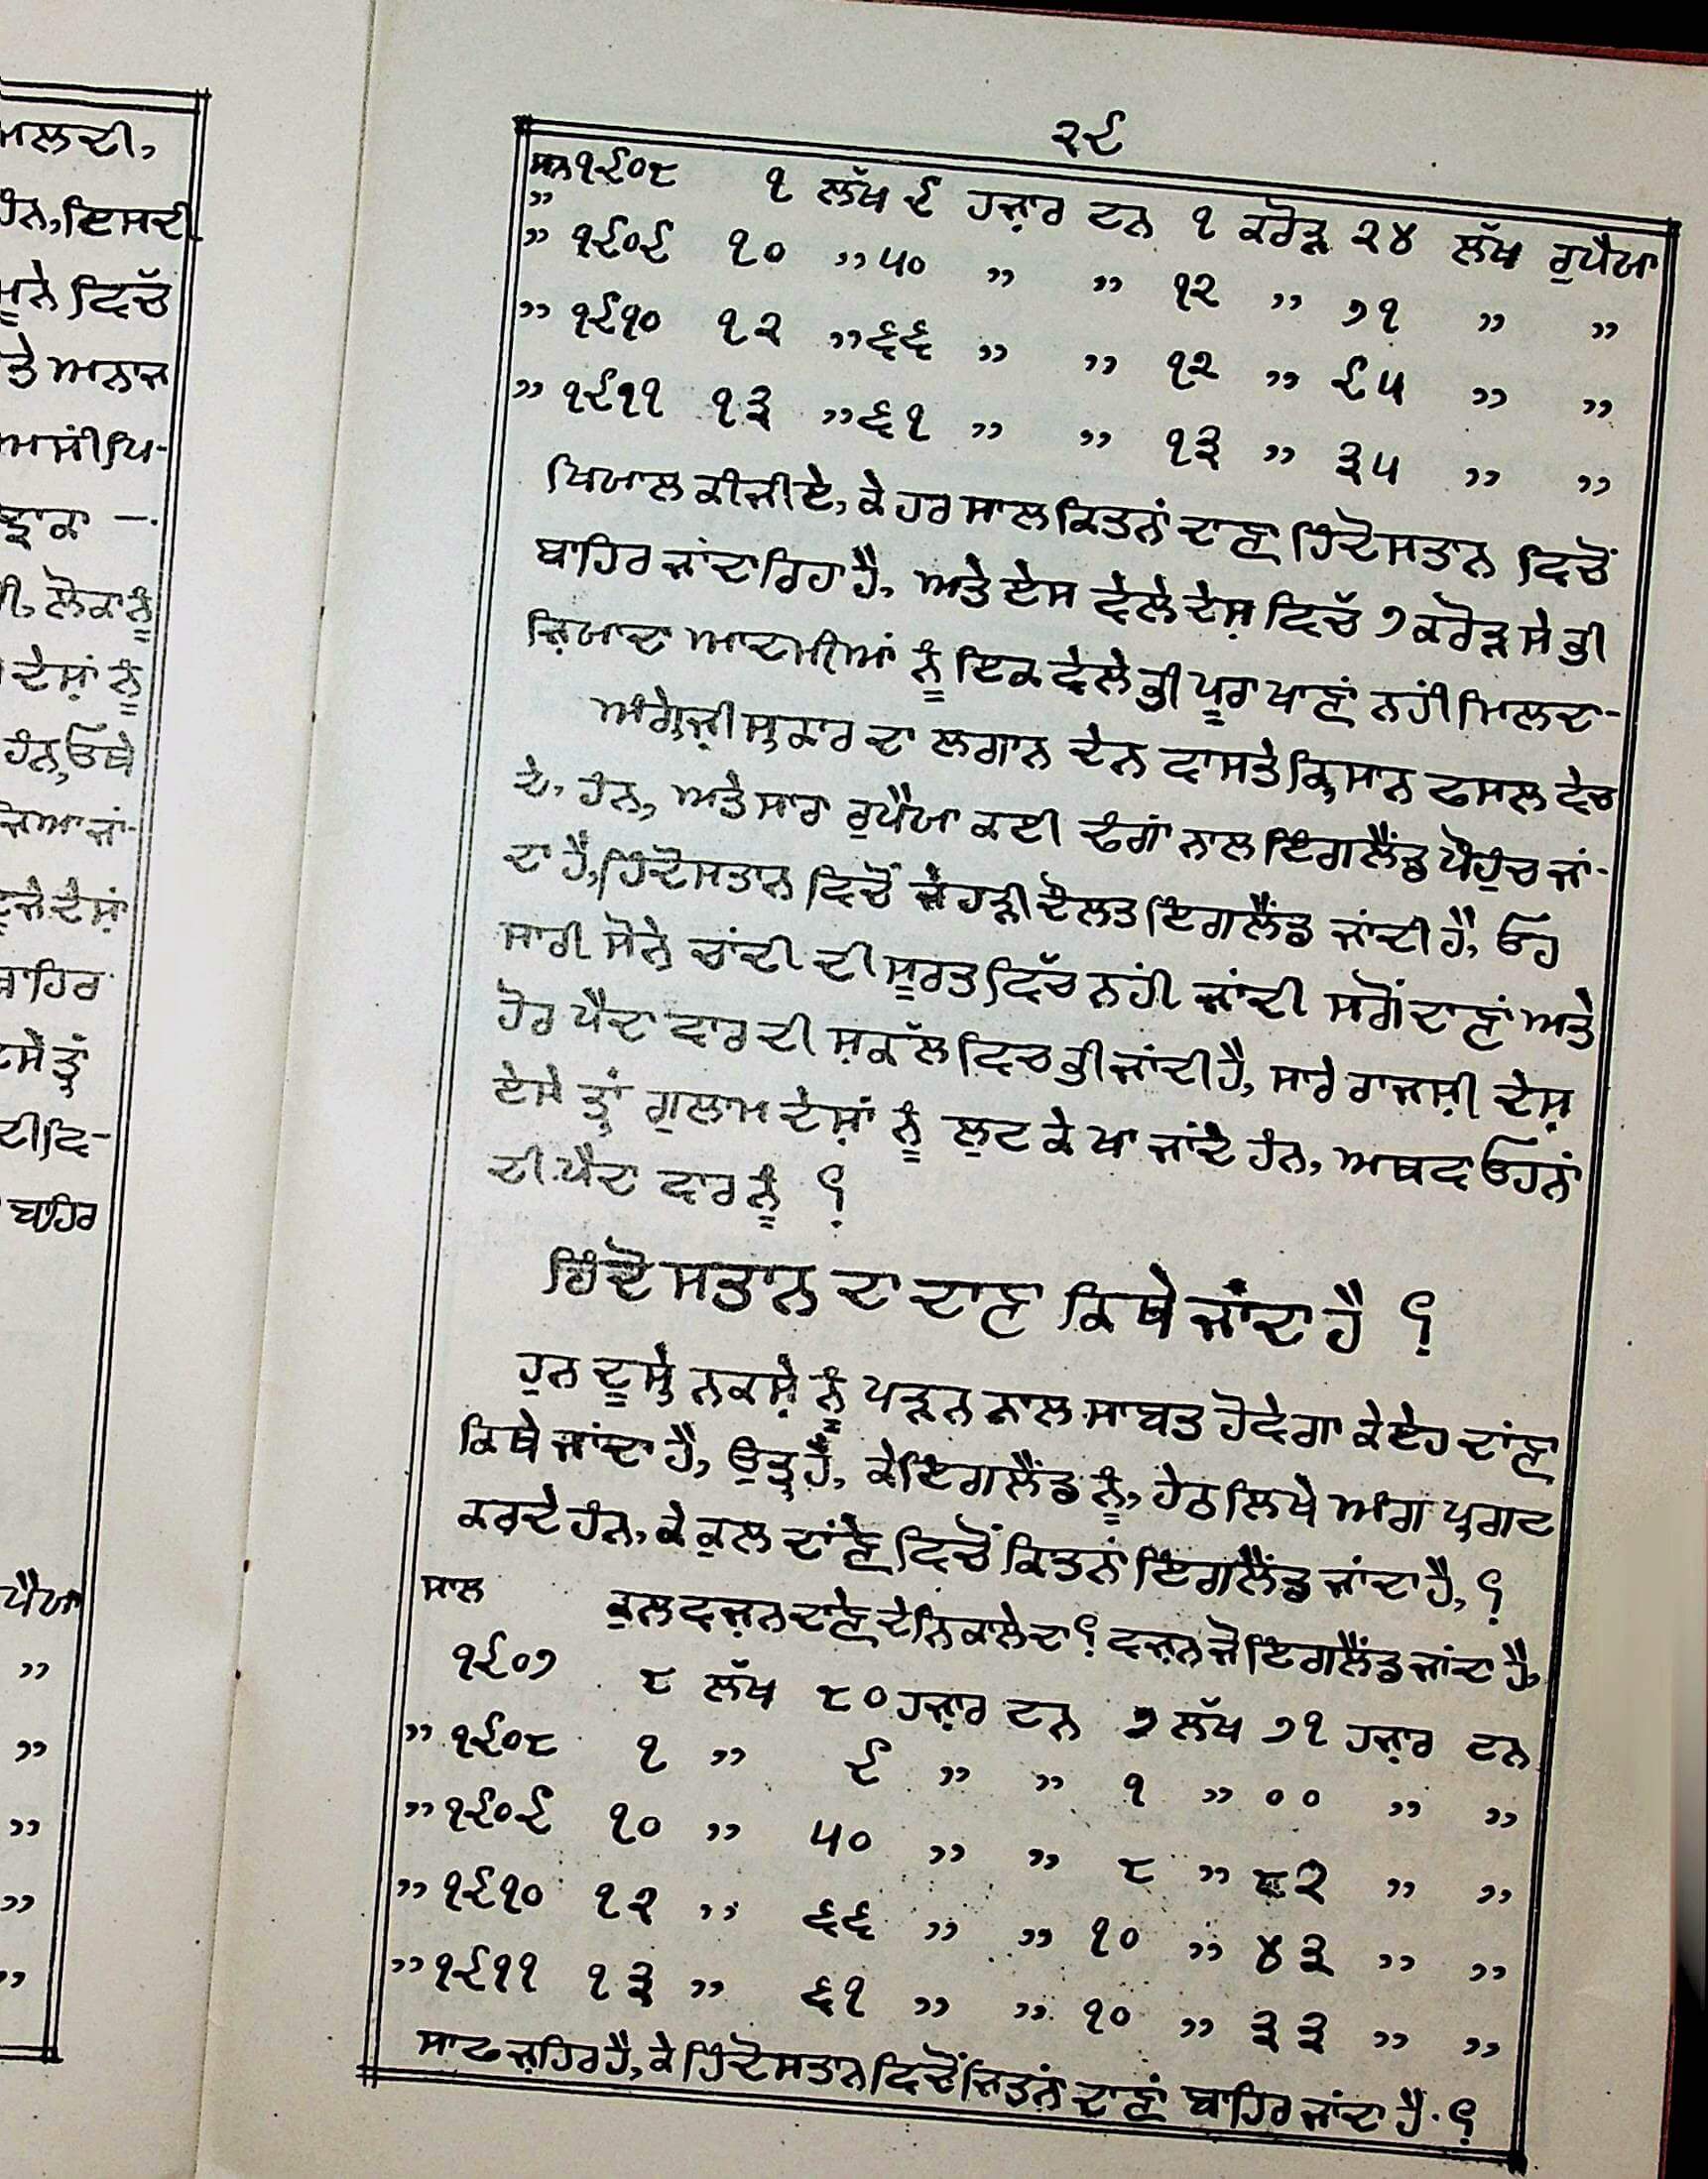 ਮਲਦੀ,
ਹੰਨ, ਇਸਦੀ
ਮੂਨੇ ਵਿਚੱ
ਤੇ ਅਨਾਜ
ਅਸੀਂ ਪਿ-
ਲੋਕਾਂ ਨੂੰ
ਦੇਸ਼ਾਂ ਨੂੰ
ਹੰਨ, ਓਥੇ
ਜਿਆ ਜਾਂ-
ਦੂਜੇ ਦੇਸ਼ਾਂ
ਬਾਹਿਰ
ਬਾਹਿਰ
ਪੈਯਾ
”
”
”
”
”
੨੯
ਸਨ ੧੯੦੮ ੧ ਲੱਖ ੯ ਹਜ਼ਾਰ ਟਨ ੧ ਕਰੋੜ ੨੪ ਲੱਖ ਰੁਪੈਯਾ
” ੧੯੦੯ ੧੦ ” ੫੦ ” ” ੧੨ ” ੭੧ ” ”
” ੧੯੧੦ ੧੨ ” ੬੬ ” ” ੧੨ ” ੯੫ ” ”
” ੧੯੧੧ ੧੩ ” ੬੧ ” ” ੧੩ ” ੩੫ ” ”
ਖਿਯਾਲ ਕੀਜੀਏ, ਕੇ ਹਰ ਸਾਲ ਕਿਤਨਾਂ ਦਾਣਾ ਹਿੰਦੋਸਤਾਨ ਵਿਚੋਂ
ਬਾਹਿਰ ਜਾਂਦਾ ਰਿਹਾ ਹੈ, ਅਤੇ ਏਸ ਵੇਲੇ ਦੇਸ਼ ਵਿਚੱ ੭ ਕਰੋੜ ਸੇ ਭੀ
ਜ਼ਿਯਾਦਾ ਆਦਮੀਆਂ ਨੂੰ ਇਕ ਵੇਲੇ ਭੀ ਪੂਰਾ ਖਾਣਾਂ ਨਹੀਂ ਮਿਲਦਾ-
ਅੰਗ੍ਰੇਜ਼ੀ ਸ੍ਰਕਾਰ ਦਾ ਲਗਾਨ ਦੇਨ ਵਾਸਤੇ ਕ੍ਰਿਸਾਨ ਫਸਲ ਵੇਚ
ਦੇ, ਹੰਨ, ਅਤੇ ਸਾਰਾ ਰੁਪੈਯਾ ਕਈ ਢੰਗਾਂ ਨਾਲ ਇੰਗਲੈਂਡ ਪੋਹੁੰਚ ਜਾਂ-
ਦਾ ਹੈ, ਹਿੰਦੋਸਤਾਨ ਵਿਚੋਂ ਜੇਹੜੀ ਦੌਲਤ ਇੰਗਲੈਂਡ ਜਾਂਦੀ ਹੈ, ਓਹ
ਸਾਰੀ ਸੋਨੇ ਚਾਂਦੀ ਦੀ ਸੂਰਤ ਵਿੱਚ ਨਹੀਂ ਜਾਂਦੀ ਸਗੋਂ ਦਾਣਾਂ ਅਤੇ
ਹੋਰ ਪੈਦਾ ਵਾਰ ਦੀ ਸ਼ਕੱਲ ਵਿਚ ਭੀ ਜਾਂਦੀ ਹੈ, ਸਾਰੇ ਰਾਜਸ਼ੀ ਦੇਸ਼
ਏਸੇ ਤ੍ਰਾਂ ਗੁਲਾਮ ਦੇਸ਼ਾਂ ਨੂੰ ਲੁਟ ਕੇ ਖਾ ਜਾਂਦੇ ਹੰਨ, ਅਥਵਾ ਓਹਨਾਂ
ਦੀ ਪੈਦਾ ਵਾਰ ਨੂੰ ?
ਹਿੰਦੋਸਤਾਨ ਦਾ ਦਾਣਾ ਕਿਥੇ ਜਾਂਦਾ ਹੈ ?
ਹੁਨ ਦੂਸ੍ਰੇ ਨਕਸ਼ੇ ਨੂੰ ਪੜ੍ਹਨ ਨਾਲ ਸਾਬਤ ਹੋਵੇਗਾ ਕੇ ਏਹ ਦਾਂਣਾ
ਕਿਥੇ ਜਾਂਦਾ ਹੈ, ਉਤ੍ਰ ਹੈ, ਕੇ ਇੰਗਲੈਂਡ ਨੂੰ, ਹੇਠ ਲਿਖੇ ਅੰਗ ਪ੍ਰਗਟ
ਕਰਦੇ ਹੰਨ, ਕੇ ਕੁਲ ਦਾਂਣੇ ਵਿਚੋਂ ਕਿਤਨਾਂ ਇੰਗਲੈਂਡ ਜਾਂਦਾ ਹੈ, ?
ਸਾਲ ਕੁਲ ਵਜ਼ਨ ਦਾਣੇ ਦੇ ਨਿਕਾਲੇ ਦਾ ? ਵਜ਼ਨ ਜੋ ਇੰਗਲੈਂਡ ਜਾਂਦਾ ਹੈ,
੧੯੦੭ ੮ ਲੱਖ ੮੦ ਹਜ਼ਾਰ ਟਨ ੭ ਲੱਖ ੭੧ ਹਜ਼ਾਰ ਟਨ
” ੧੯੦੮ ੧ ” ੯ ” ” ੧ ” ੦੦ ” ”
” ੧੯੦੯ ੧੦ ” ੫੦ ” ” ੮ ” ੮੨ ” ”
” ੧੯੧੦ ੧੨ ” ੬੬ ” ” ੧੦ ” ੪੩ ” ”
” ੧੯੧੧ ੧੩ ” ੬੧ ” ” ੧੦ ” ੩੩ ” ”
ਸਾਫ ਜ਼ਾਹਿਰ ਹੈ, ਕੇ ਹਿੰਦੋਸਤਾਨ ਵਿਚੋਂ ਜਿਤਨਾਂ ਦਾਣਾਂ ਬਾਹਿਰ ਜਾਂਦਾ ਹੈ. ?